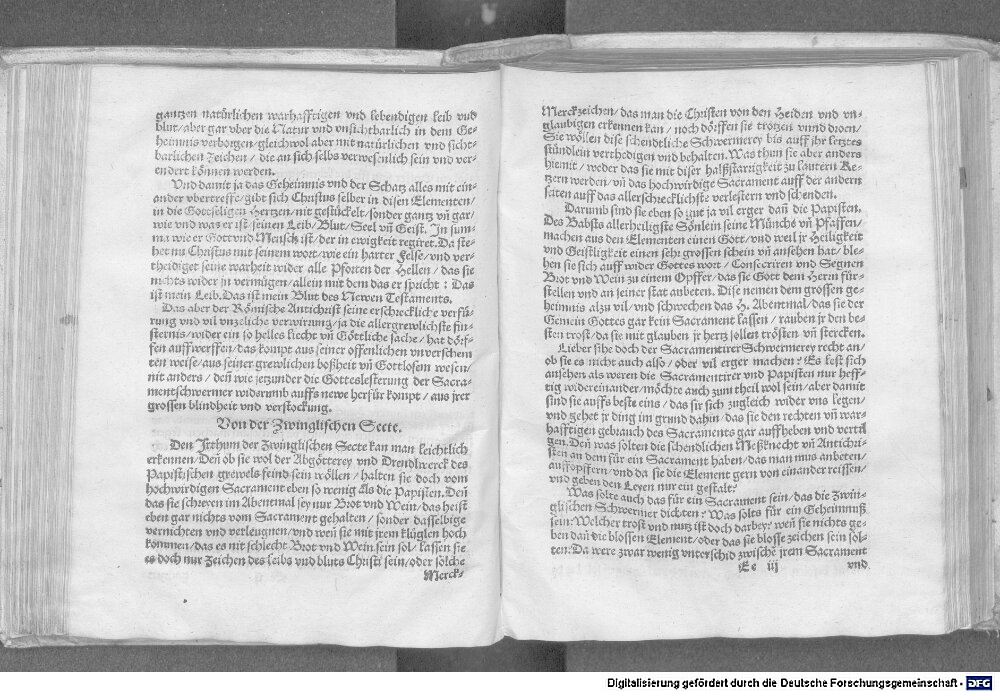 gantzen natürlichen warhafftigen vnd lebendigen leib vnd
blut/aber gar vber die Natur vnd vnsichtbarlich in dem Ge-
heimnis verborgen/gleichwol aber mit natürlichen vnd sicht-
barlichen Zeichen / die an sich selbs verwesenlich sein vnd ver-
endert können werden.
Vnd damit ja das Geheimnis vnd der Schatz alles mit ein-
ander vbertreffe/gibt sich Christus selber in disen Elementen/
in die Gottseligen Hertzen/nit gestückelt/sonder gantz vñ gar/
wie vnd was er ist/seinen Leib/Blut/Seel vñ Geist. Jn sum
ma wie er Gott vnd Mensch ist/der in ewigkeit regiret. Da ste-
het nu Christus mit seinem wort/wie ein harter Felse/vnd ver-
thediget seine warheit wider alle Pforten der Hellen / das sie
nichts wider jn vermügen/allein mit dem das er spricht: Das
ist mein Leib. Das ist mein Blut des Newen Testaments.
Das aber der Römische Antichrist seine erschreckliche verfü-
rung vnd vil vnzeliche verwirung/ja die allergrewlichste fin-
sternis/wider ein so helles liecht vñ Göttliche sache/hat dörf-
fen auffwerffen/das kompt aus seiner offenlichen vnverschem
ten weise/aus seiner grewlichen boßheit vñ Gottlosem wesen/
nit anders / deñ wie jetzunder die Gotteslesterung der Sacra-
mentschwermer widerumb auffs newe herfür kompt/ aus jrer
grossen blindheit vnd verstockung.
Von der Zwinglischen Secte.
Den Jrthum der Zwinglischen Secte kan man leichtlich
erkennen/Deñ ob sie wol der Abgötterey vnd Drendlwerck des
Papistischen grewels feind sein wöllen / halten sie doch vom
hochwirdigen Sacrament eben so wenig als die Papisten. Deñ
das sie schreyen im Abentmal sey nur Brot vnd Wein/das heist
eben gar nichts vom Sacrament gehalten / sonder dasselbige
vernichten vnd verleugnen/vnd weñ sie mit jrem klüglen hoch
kommen/das es nit schlecht Brot vnd Wein sein sol/lassen sie
es doch nur Zeichen des leibs vnd bluts Christi sein/oder solche
Merck-
Merckzeichen/das man die Christen von den Heiden vnd vn-
glaubigen erkennen kan / noch dörffen sie trotzen vnnd droen/
Sie wöllen dise schendtliche Schwermerey bis auff jhr letztes
stündlein verthedigen vnd behalten. Was thun sie aber anders
hiemit / weder das sie mit diser halßstarrigkeit zu lautern Ke-
tzern werden/vñ das hochwirdige Sacrament auff der andern
seiten auff das allerschrecklichste verlestern vnd schenden.
Darumb sind sie eben so gut ja vil erger dañ die Papisten.
Des Babsts allerheiligste Sönlein seine Münche vñ Pfaffen/
machen aus den Elementen einen Gott/vnd weil jr Heiligkeit
vnd Geistligkeit einen sehr grossen schein vñ ansehen hat/ ble-
hen sie sich auff wider Gottes wort / Consecriren vnd Segnen
Brot vnd Wein zu einem Opffer/das sie Gott dem Herrn für-
stellen vnd an seiner stat anbeten. Dise nemen dem grossen ge-
heimnis alzu vil/vnd schwechen das H. Abentmal/das sie der
Gemein Gottes gar kein Sacrament lassen / rauben jr den be-
sten trost/da sie mit glauben jr hertz sollen trösten vñ stercken.
Lieber sihe doch der Sacramentirer Schwermerey recht an/
ob sie es nicht auch also / oder vil erger machen? Es lest sich
ansehen als weren die Sacramentirer vnd Papisten nur heff-
tig widereinander/möchte auch zum theil wol sein/aber damit
sind sie auffs beste eins / das sie sich zugleich wider vns legen/
vnd gehet jr ding im grund dahin/das sie den rechten vñ war-
hafftigen gebrauch des Sacraments gar auffheben vnd vertil
gen. Deñ was solten die schendlichen Meßknecht vñ Antichri-
sten an dem für ein Sacrament haben/das man mus anbeten/
auffopffern/vnd da sie die Element gern von einander reissen/
vnd geben den Leyen nur ein gestalt?
Was solte auch das für ein Sacrament sein/das die Zwin-
glischen Schwermer dichten? Was solts für ein Geheimnuß
sein? Welcher trost vnd nutz ist doch darbey? weñ sie nichts ge-
ben dañ die blossen Element/oder das sie blosse zeichen sein sol-
ten? Da were zwar wenig vnterschid zwischē jrem Sacrament
Ee iij vnd
Digitalisierung gefördert durch die Deutsche Forschungsgemeinschaft - DFG